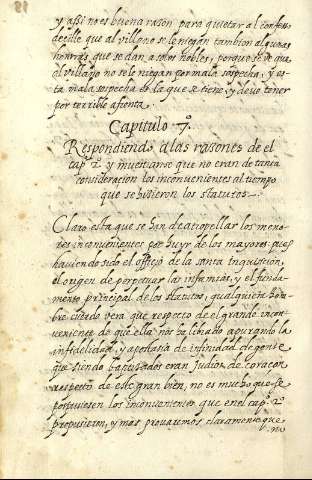 y asi no es buena rason para quietar al confeso
decille que al villano se le niegan tambien algunas
honrras que se dan a solos nobles, porque se ve que
al villano no se lo niegan por mala sospecha, y es-
ta mala sospecha es la que se tiene, y deve tener
por terrible afrenta.
Capitulo 7.
Respondiendo a las rasones de el
cap.º 2. y muestranse que no eran de tanta
consideracion los inconvenientes al tiempo
que se hisieron los statutos.
Claro esta que se han de atropellar los meno-
res inconvenientes por huyr de los mayores, pues
haviendo sido el officio de la santa Inquisicion,
el origen de perpetuar las infamias, y el funda-
mento principal de los statutos, qualquiera hom-
bre cuerdo vera que respecto de el grande incon-
veniente de que ella nos ha librado apurando la
infidelidad, y apostasia de infinidad de gente
que siendo baptisados eran Judios de coraçon
respecto de este gran bien, no es mucho que se
pospusiesen los inconvenientes que en el cap.º 2.º
propusieron, y mas provaremos claramente que
no